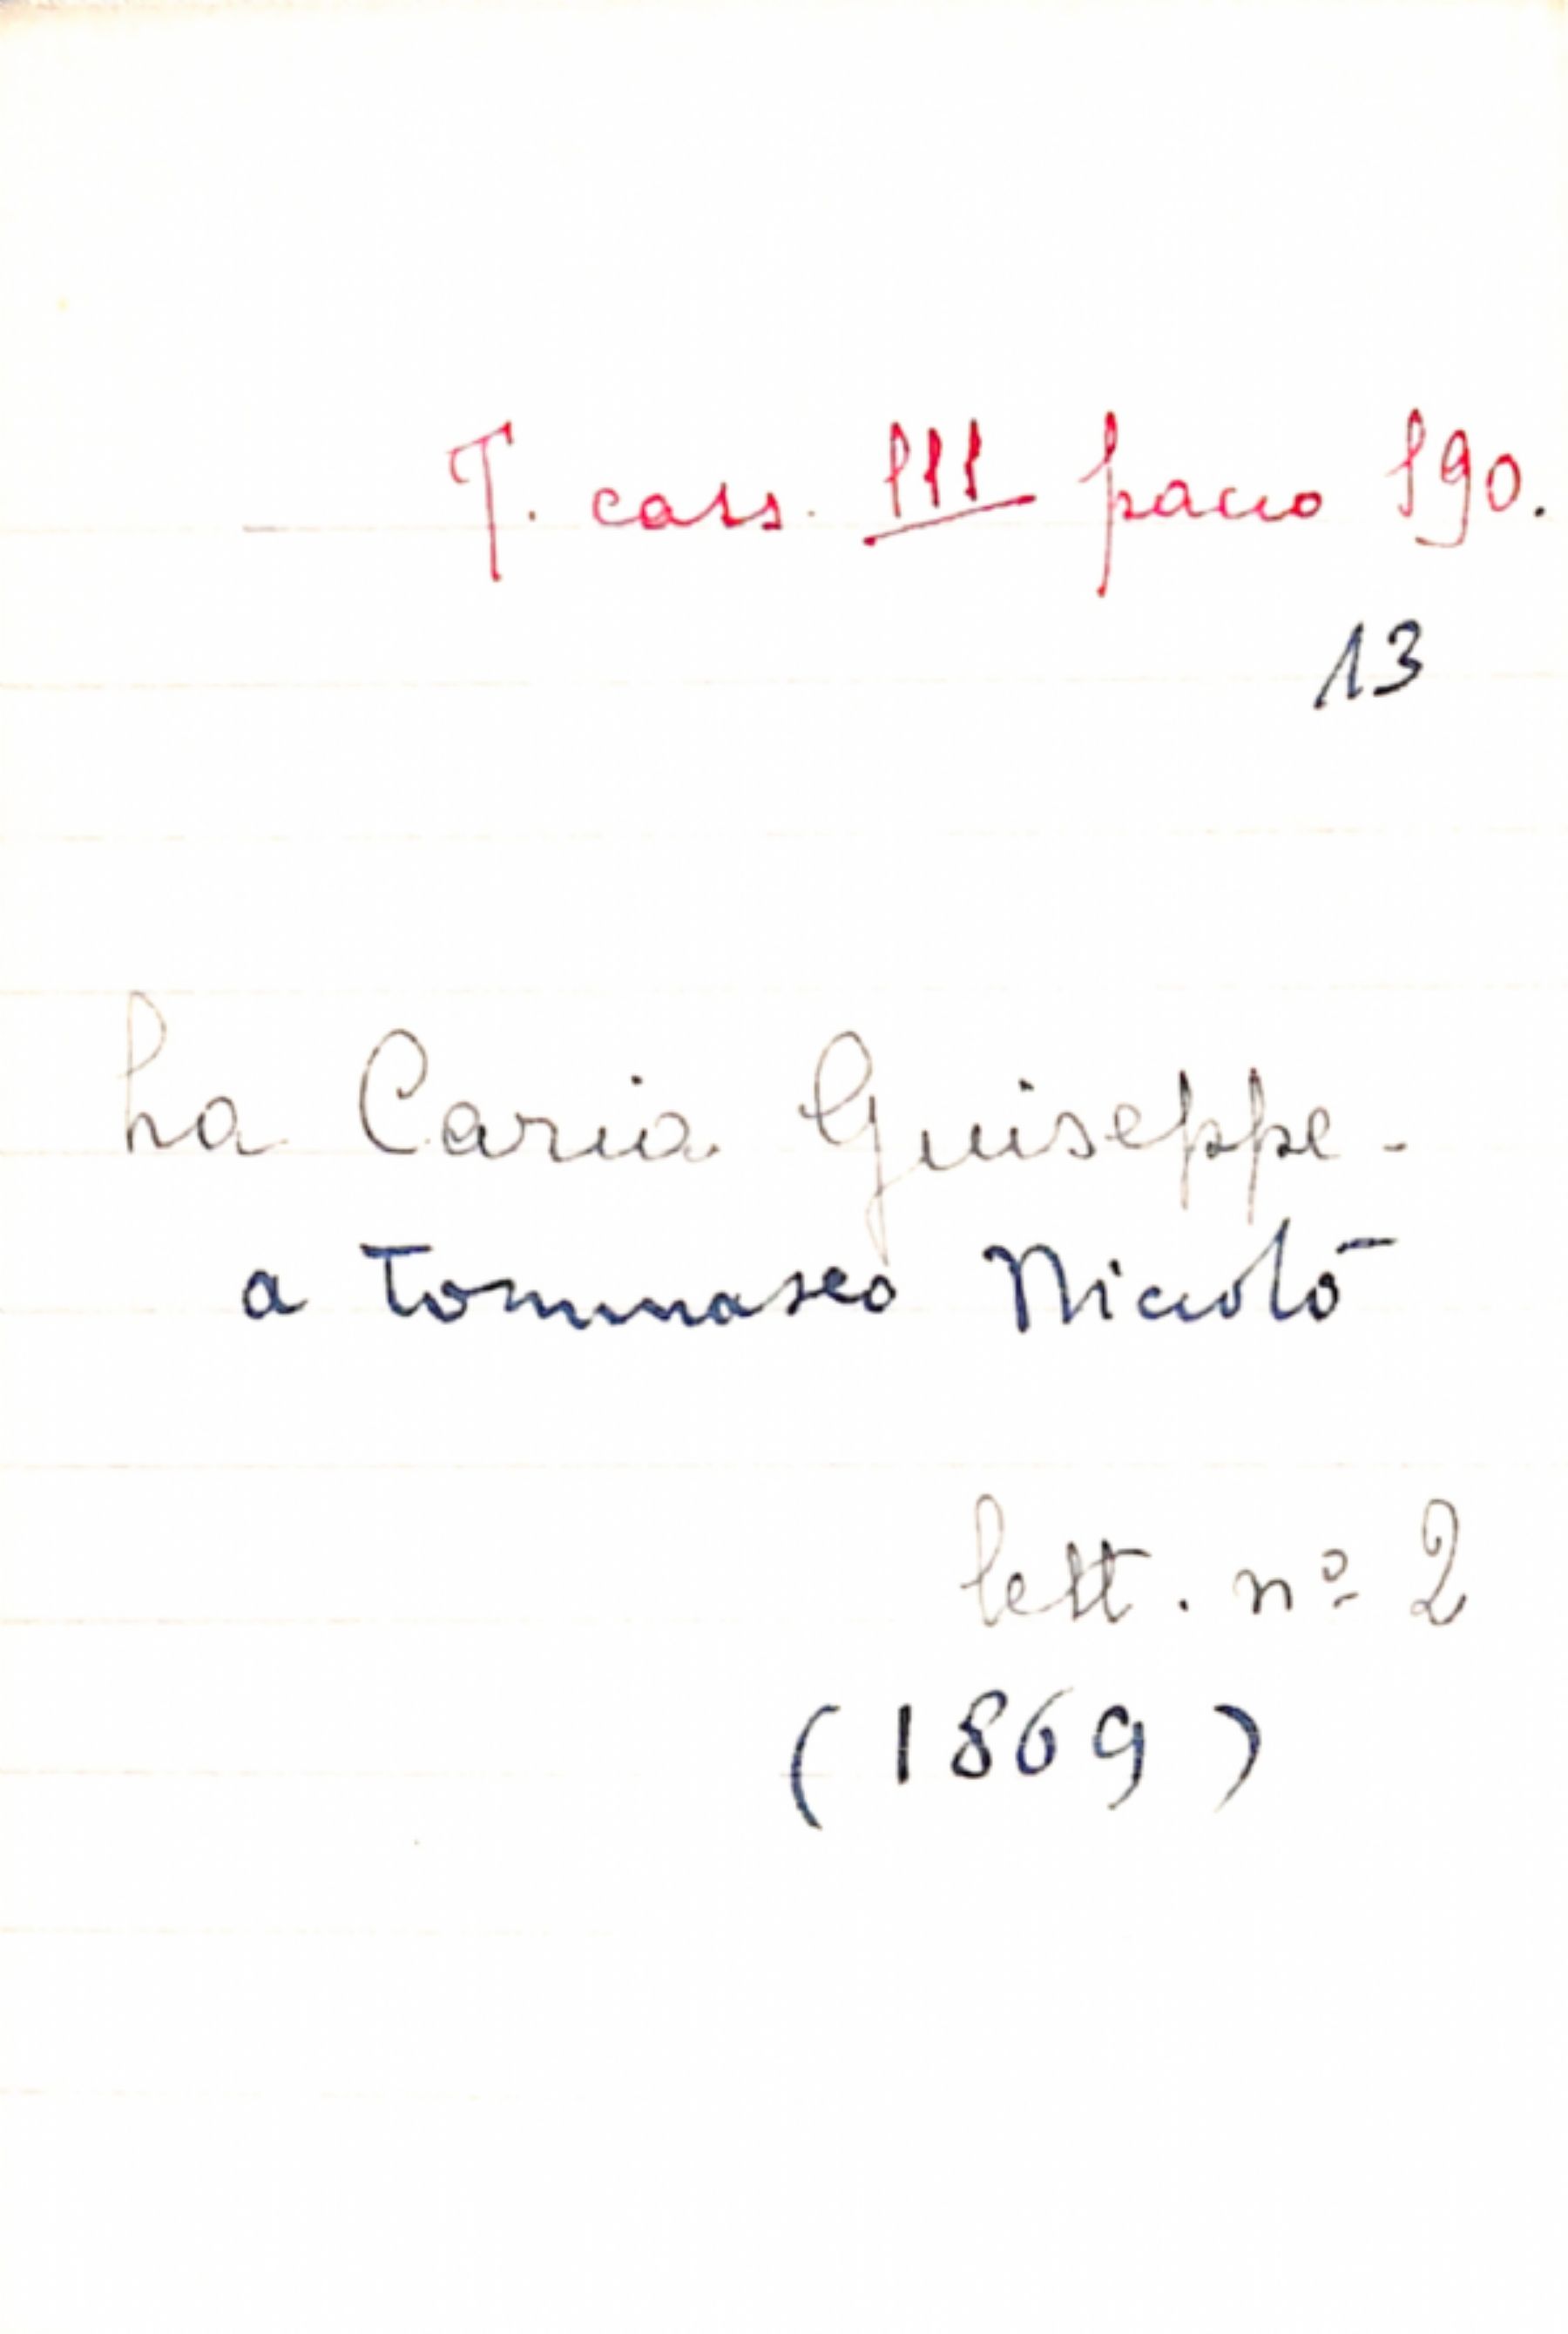 T. cass. III pacco 190.
13
La Caria Giuseppe -
a Tommaseo Niccolò
lett. nº 2
(1869)